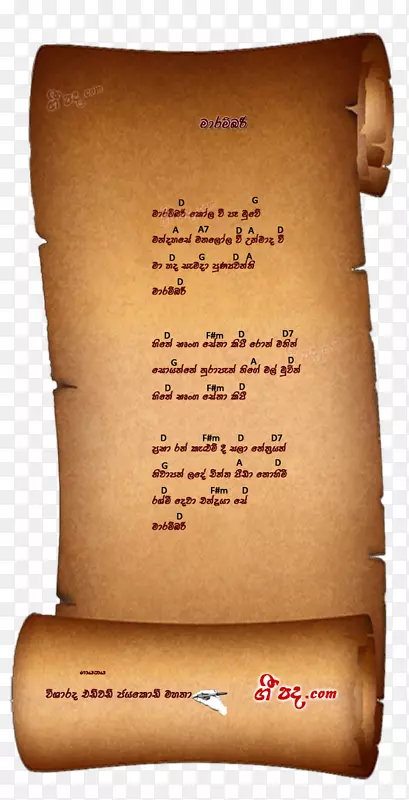 ගී පද.com
මාරම්බරී
D G
මාරම්බරී කෝල වී පෑ මුවේ
A A7 D A D
මන්දහසේ මනලෝල වී උන්මාද වී
D G D A
මා හද සැමදා පුණ්‍යවන්ති
D
මාරම්බරී
D F#m D D7
හිතේ භෘංග සේනා කිපී රොන් මතින්
G A D
සොයන්නේ නුරාපැන් හිගේ මල් මුවින්
D F#m D
හිතේ භෘංග සේනා කිපී
D F#m D D7
ප්‍රභා රන් කැළුම් දී සලා නේත්‍රයන්
G A D
නිවාපන් ලදේ චින්ත පීඩා නොහිම්
D F#m D
රශ්මි දෙවා චන්ද්‍රයා සේ
D
මාරම්බරී
ගායනය
විශාරද එඩ්වඩ් ජයකොඩි මහතා
ගී පද.com